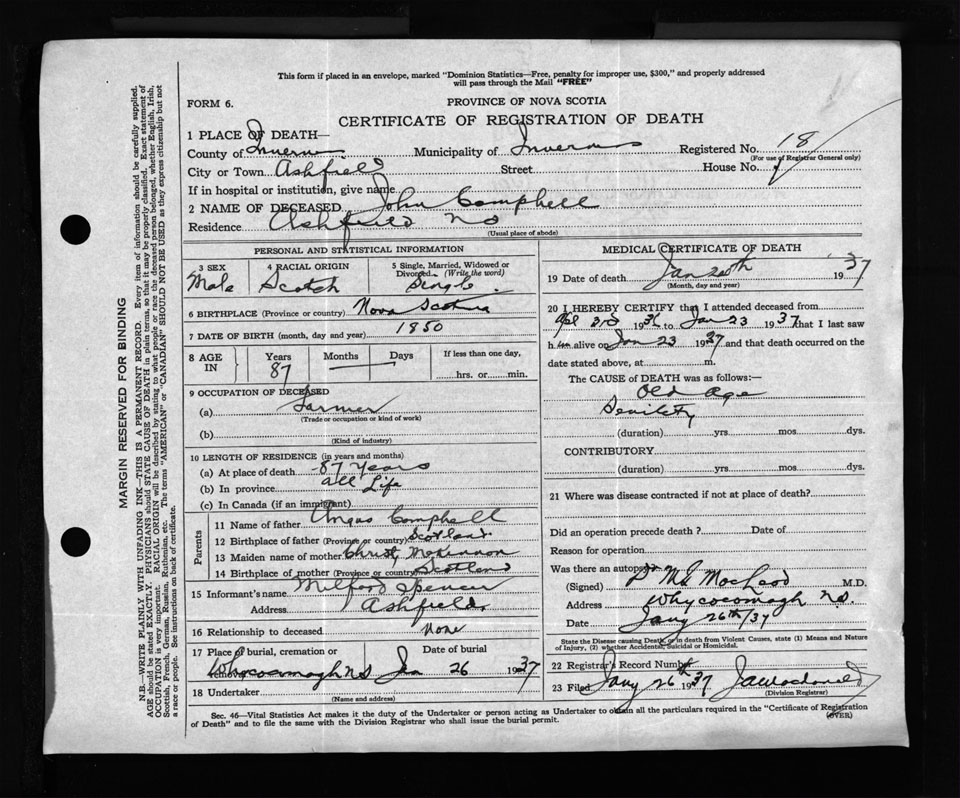 This form if placed in an envelope, marked "Dominion Statistics—Free, penalty for improper use, $300," and properly addressed
will pass through the Mail "FREE"
FORM 6.
PROVINCE OF NOVA SCOTIA
CERTIFICATE OF REGISTRATION OF DEATH
1 PLACE OF DEATH—
County of Inverness Municipality of Inverness Registered No. 18
(For use of Registrar General only)
City or Town Ashfield Street House No.
If in hospital or institution, give name
2 NAME OF DECEASED John Campbell
Residence Ashfield NS
(Usual place of abode)
PERSONAL AND STATISTICAL INFORMATION
3 SEX 4 RACIAL ORIGIN 5 Single, Married, Widowed or
Divorced. (Write the word)
Male Scotch Single
6 BIRTHPLACE (Province or country) Nova Scotia
7 DATE OF BIRTH (month, day and year) 1850
8 AGE IN Years Months Days If less than one day,
87 hrs. or min.
9 OCCUPATION OF DECEASED
(a) Farmer
(Trade or occupation or kind of work)
(b)
(Kind of industry)
10 LENGTH OF RESIDENCE (in years and months)
(a) At place of death 87 years
(b) In province all Life
(c) In Canada (if an immigrant)
Parents
11 Name of father Angus Campbell
12 Birthplace of father (Province or country) Scotland
13 Maiden name of mother Christy McKinnon
14 Birthplace of mother (Province or country) Scotland
15 Informant's name Milford Spencer
Address Ashfield
16 Relationship to deceased None
17 Place of burial, cremation or Date of burial
removal Whycocomagh NS Jan 26 1937
18 Undertaker
(Name and address)
MEDICAL CERTIFICATE OF DEATH
19 Date of death Jan 24th 1937
(Month, day and year)
20 I HEREBY CERTIFY that I attended deceased from
3rd 1936 to Jan 23 1937 that I last saw
him alive on Jan 23 1937 and that death occurred on the
date stated above, at m.
The CAUSE OF DEATH was as follows:—
Old Age
Senility
(duration) yrs mos dys.
CONTRIBUTORY
(duration) yrs mos dys.
21 Where was disease contracted if not at place of death?
Did an operation precede death? Date of
Reason for operation
Was there an autopsy
(Signed) MacLeod M.D.
Address Whycocomagh N.S.
Date Jany 26th/37
State the Disease causing Death, or in death from Violent Causes, state (1) Means and Nature
of Injury, (2) whether Accidental, Suicidal or Homicidal.
22 Registrar's Record Number
23 Filed Jany 26th 1937 J A Macdonald
(Division Registrar)
Sec. 46—Vital Statistics Act makes it the duty of the Undertaker or person acting as Undertaker to obtain all the particulars required in the "Certificate of Registration
of Death" and to file the same with the Division Registrar who shall issue the burial permit.
(OVER)
MARGIN RESERVED FOR BINDING
N.B.—WRITE PLAINLY WITH UNFADING INK—THIS IS A PERMANENT RECORD. Every item of information should be carefully supplied.
AGE should be stated EXACTLY. PHYSICIANS should STATE CAUSE OF DEATH in plain terms, so that it may be properly classified. Exact statement of
OCCUPATION is very important. RACIAL ORIGIN will be described by stating to what people or race the deceased person belonged, whether English, Irish,
Scottish, French, German, Russian, Ruthenian, etc. The terms "AMERICAN" or "CANADIAN" SHOULD NOT BE USED as they express citizenship but not
a race or people. See instructions on back of certificate.